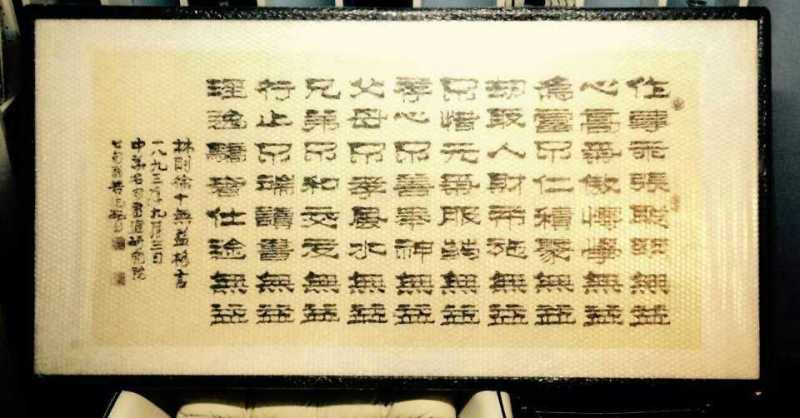 作事乖張聰明無益
心高氣傲博學無益
為富不仁積聚無益
劫取人財布施無益
不惜元氣服藥無益
存心不善奉神無益
父母不孝風水無益
兄弟不和交友無益
行止不端讀書無益
淫逸驕奢仕途無益
林則徐十無益格言
九三年九月三日
中華名人書畫研究院